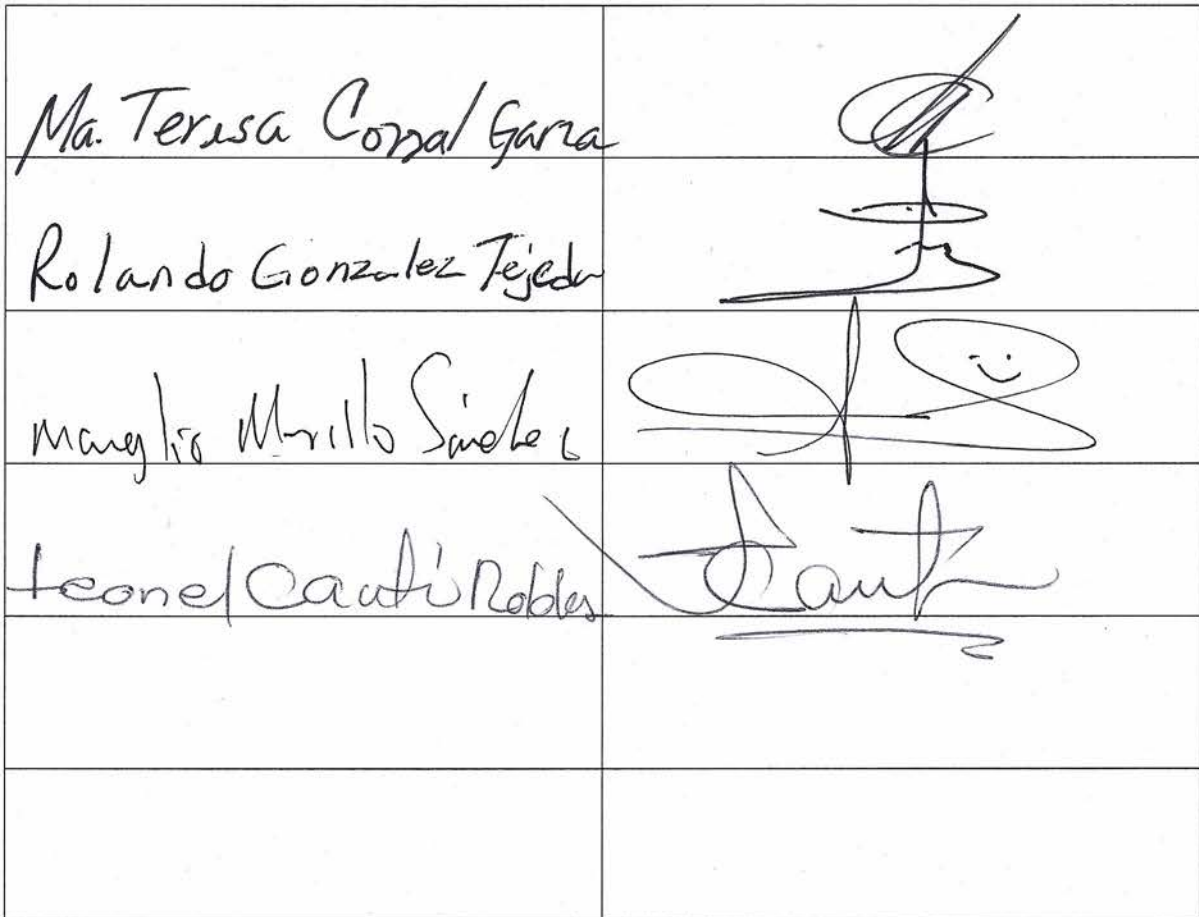 Ma. Teresa Corral Garza
Rolando Gonzalez Tejeda
Manglio Murillo Sánchez
Leonel Cantú Robles Cantú